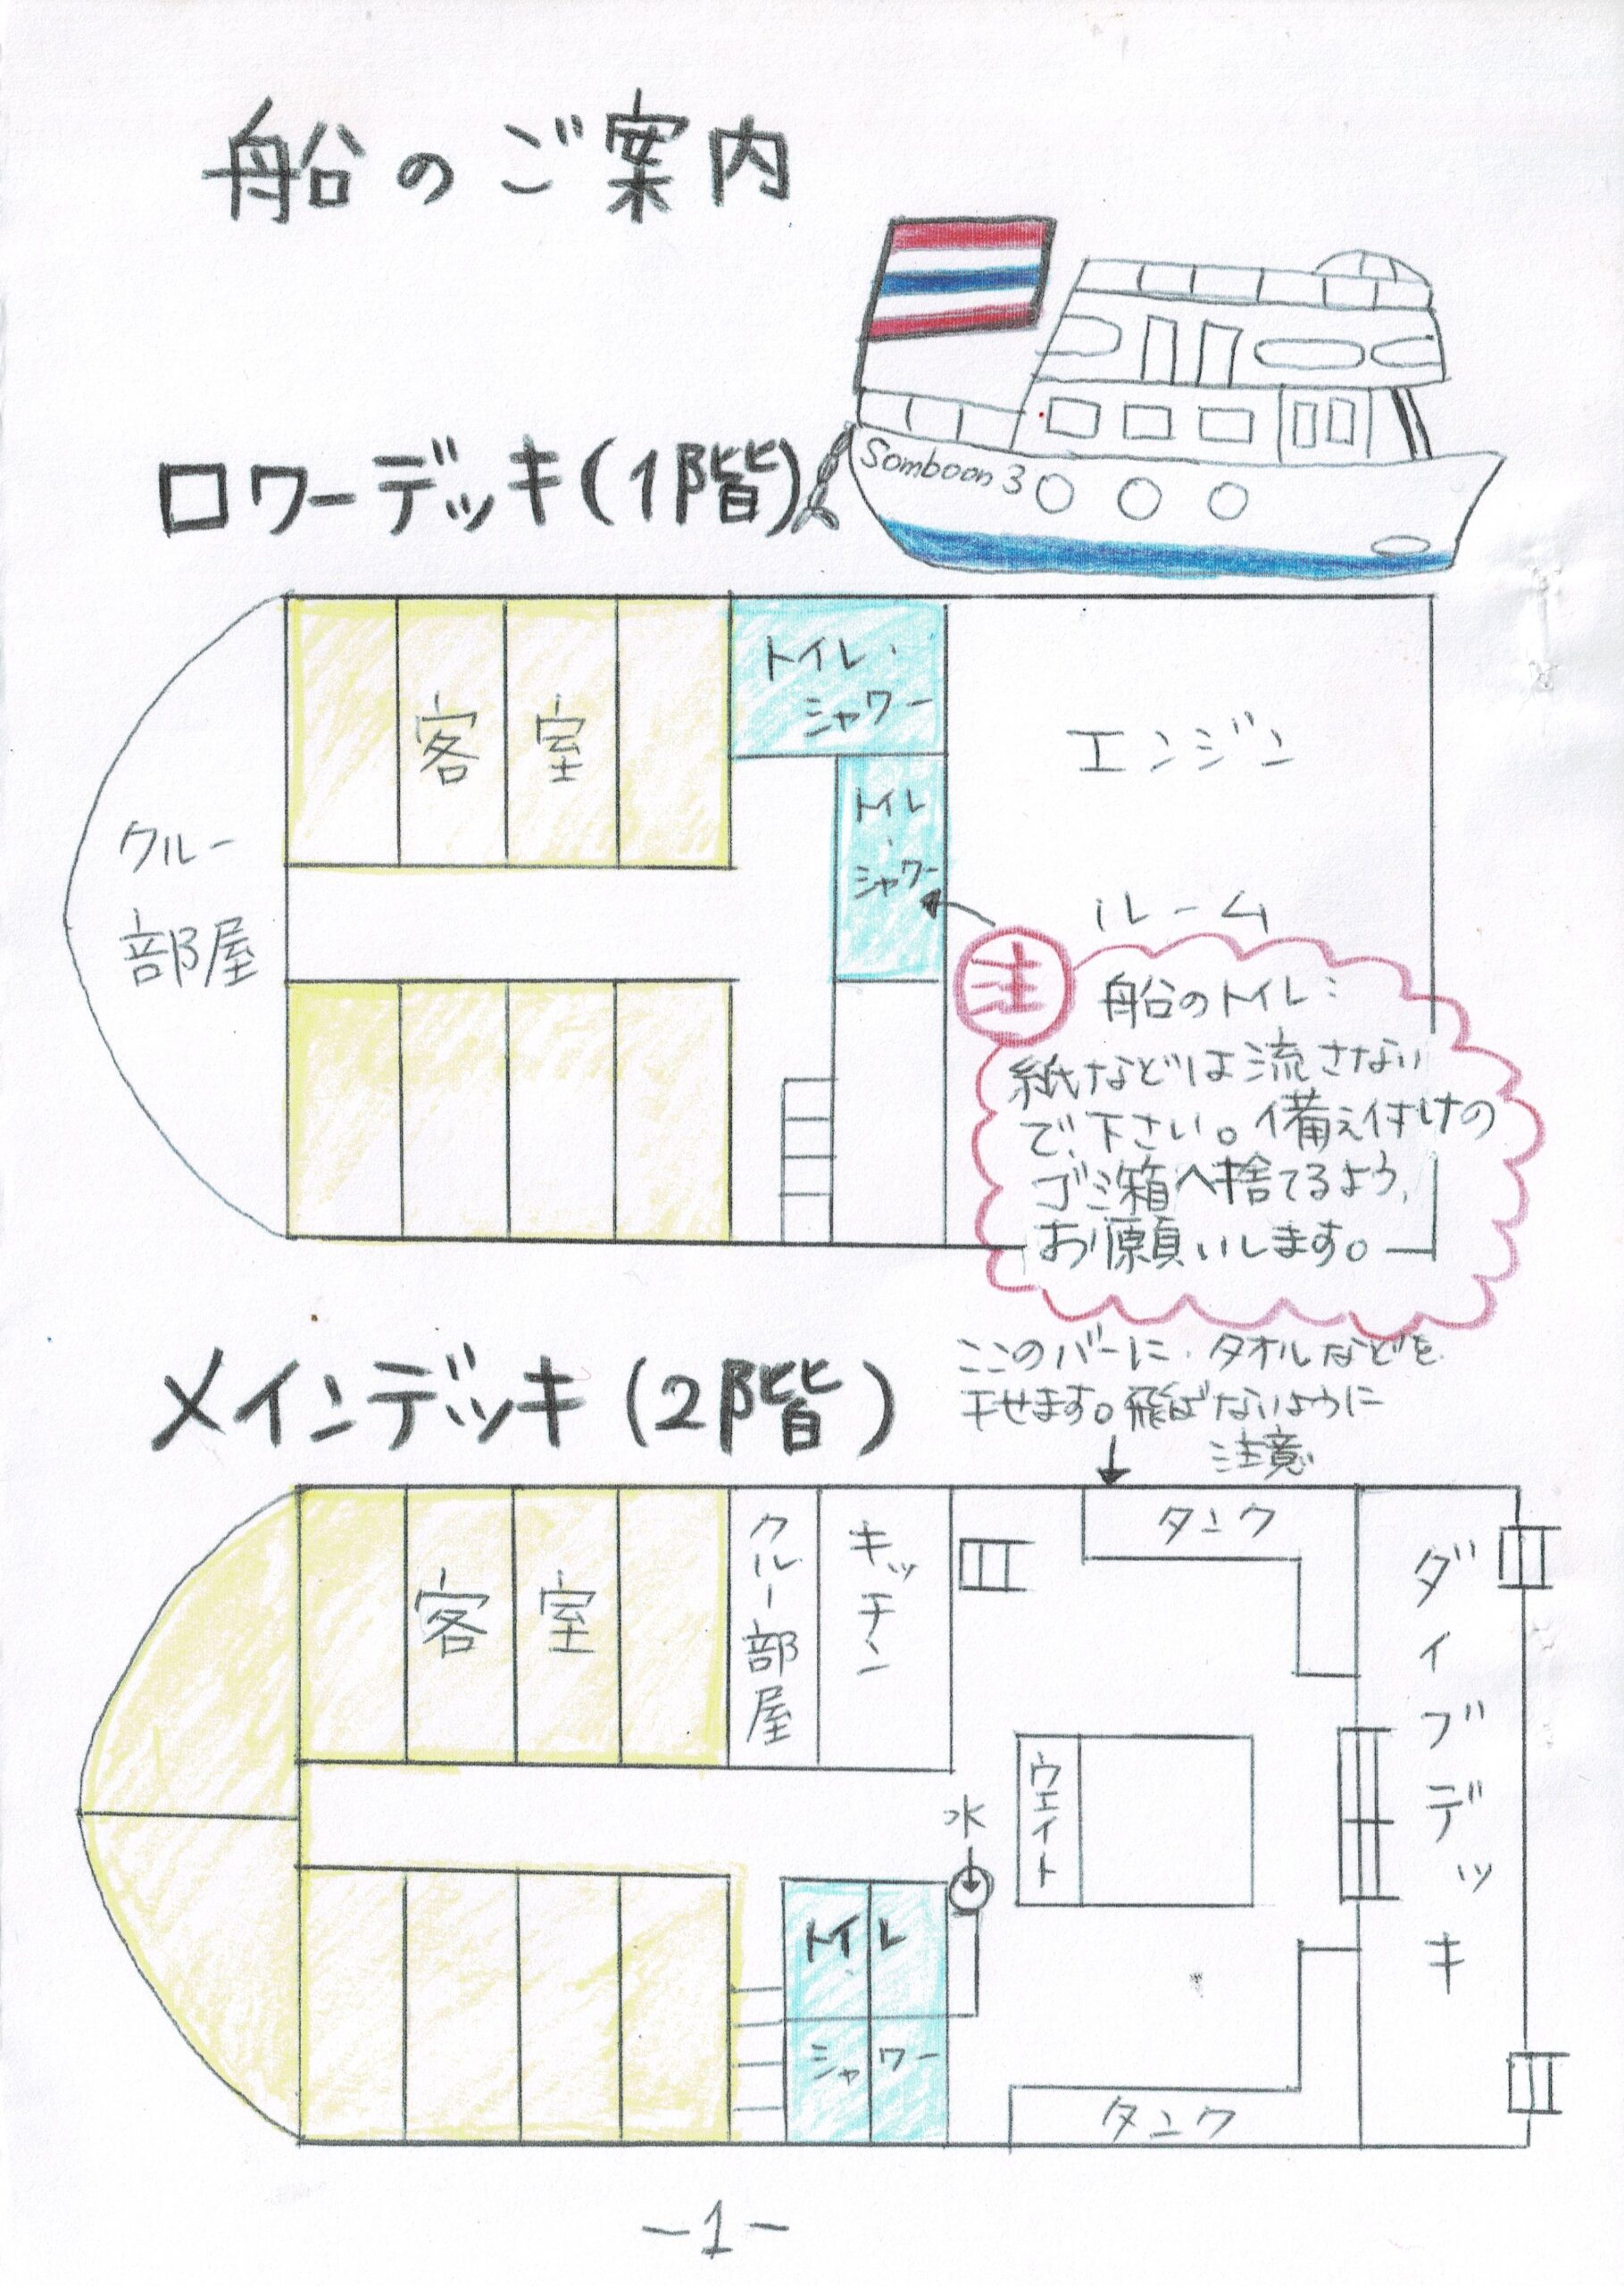 船のご案内
Somboon 3
ロワーデッキ(1階)
トイレ・
シャワー
客室
エンジン
ルーム
トイレ
・
シャワー
クルー
部屋
注
船のトイレ:
紙などは流さない
で下さい。備え付けの
ゴミ箱へ捨てるよう、
お願いします。
メインデッキ(2階)
ここのバーに、タオルなどを
干せます。飛ばないように
注意
タンク
客室
クルー部屋
キッチン
ダイブデッキ
ウエイト
水
トイレ
シャワー
タンク
-1-